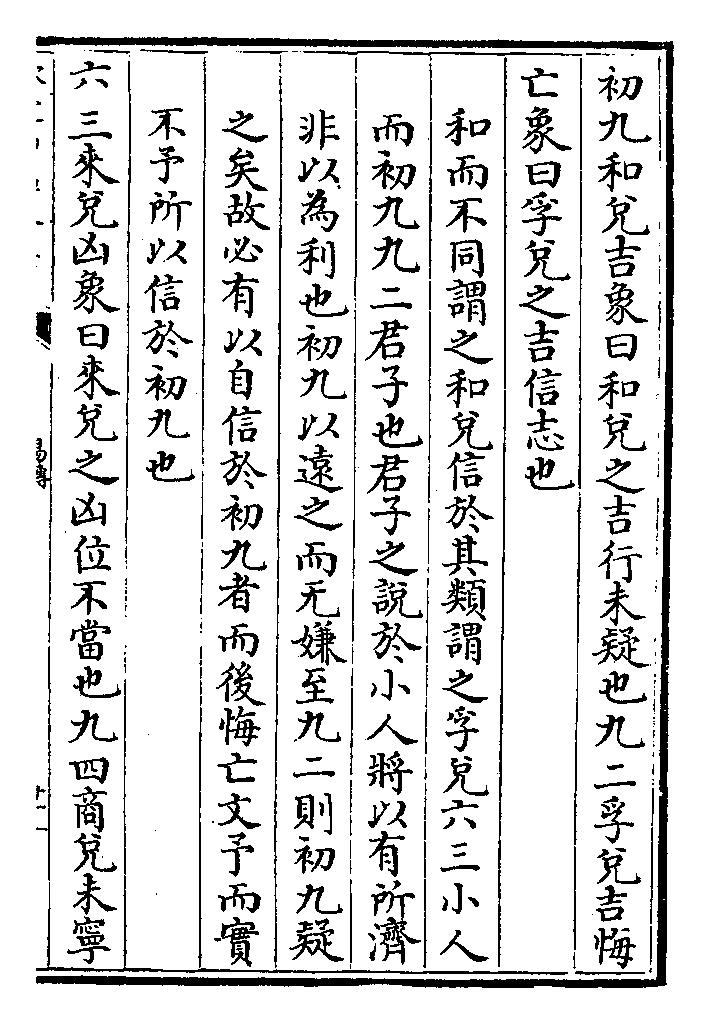 初九和兌吉象曰和兌之吉行未疑也九二孚兌吉悔
亡象曰孚兌之吉信志也
和而不同謂之和兌信於其類謂之孚兌六三小人
而初九九二君子也君子之說於小人將以有所濟
非以為利也初九以遠之而无嫌至九二則初九疑
之矣故必有以自信於初九者而後悔亡文予而實
不予所以信於初九也
六三來兌凶象曰來兌之凶位不當也九四商兌未寧
易傳